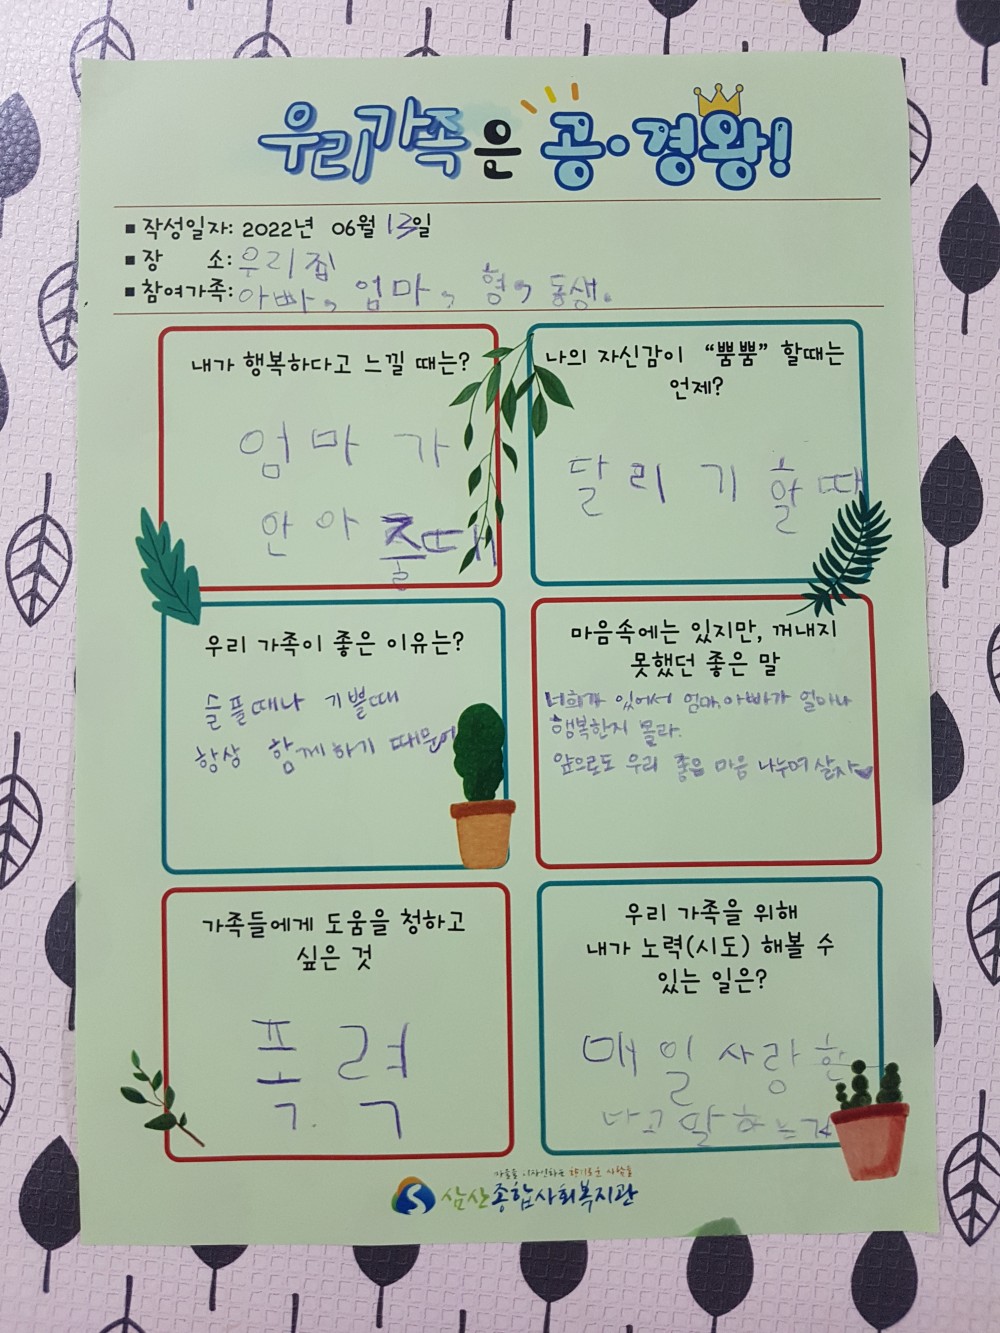 우리가족은 공·경왕!
■ 작성일자: 2022년 06월 13일
■ 장 소: 우리집
■ 참여가족: 아빠, 엄마, 형, 동생.
내가 행복하다고 느낄 때는?
엄마가
안아 줄때
나의 자신감이 “뿜뿜” 할때는
언제?
달리기 할때
우리 가족이 좋은 이유는?
슬플때나 기쁠때
항상 함께하기 때문에
마음속에는 있지만, 꺼내지
못했던 좋은 말
너희가 있어서 엄마, 아빠가 얼마나
행복한지 몰라.
앞으로도 우리 좋은 마음 나누며 살자♥
가족들에게 도움을 청하고
싶은 것
폭력
우리 가족을 위해
내가 노력(시도) 해볼 수
있는 일은?
매일 사랑한
다고 말하는거
가족을 디자인하는 향기로운 사람들
삼산종합사회복지관